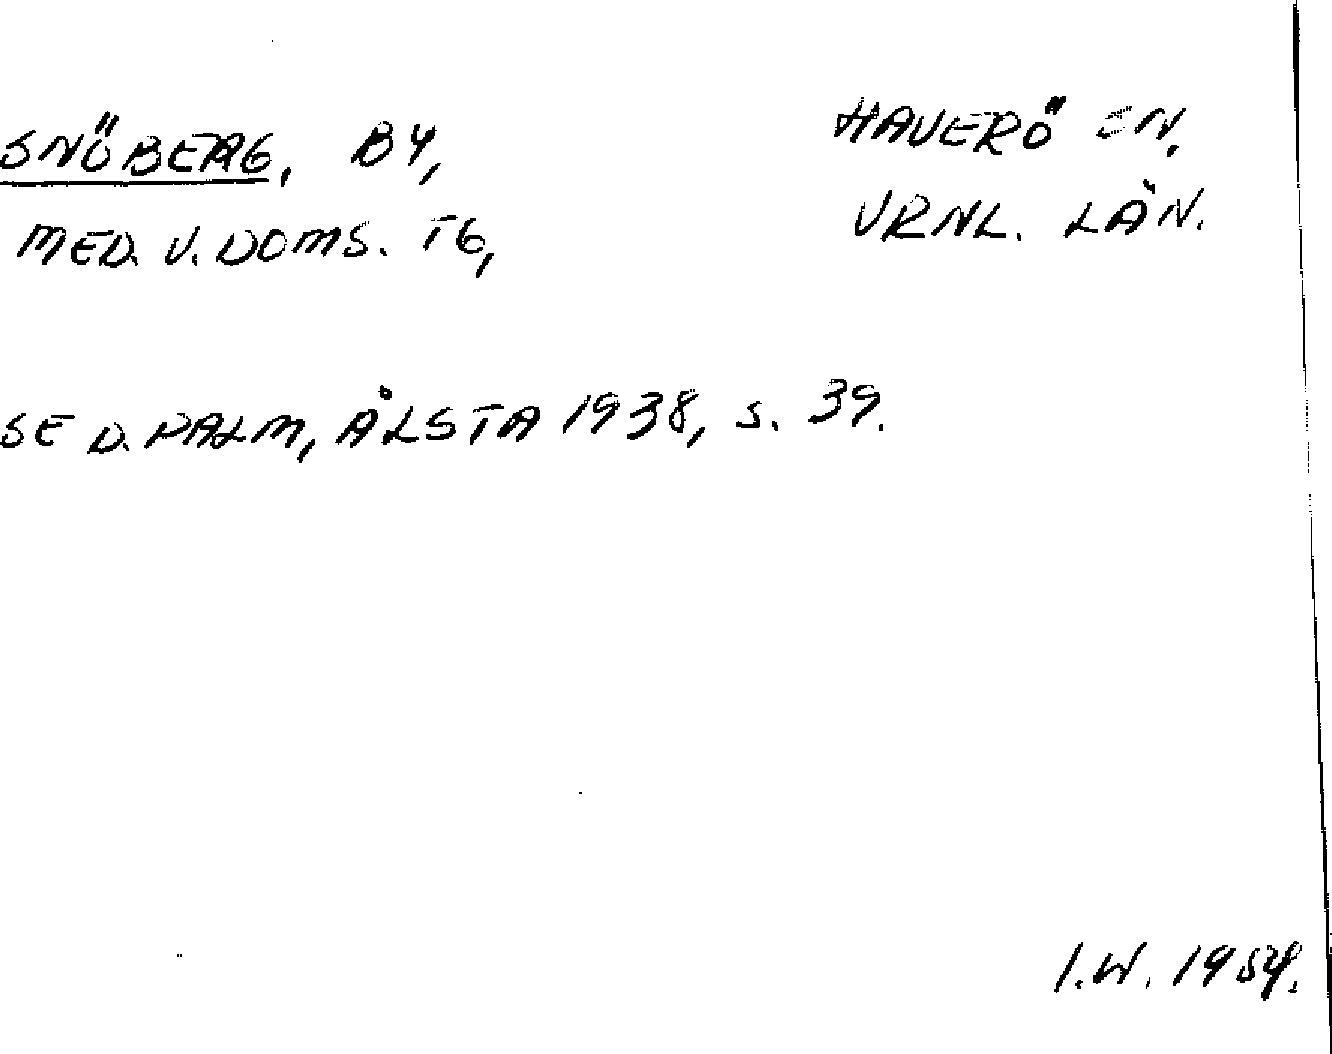 SNÖBERG, BY,
HAVERÖ SN,
MED. V. DOMS. TG,
VRNL. LÄN.
SE D. PALM, ÄLSTA 1938, S. 39.
I.W. 1954.